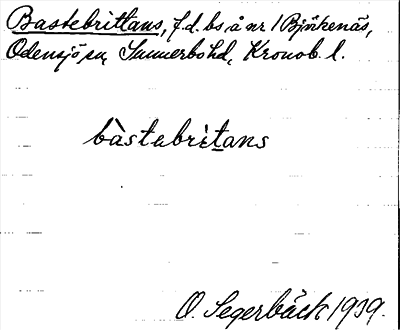 Bastebrittans, f.d. bs å nr 1 Björkenäs,
Odensjö sn, Sunnerbo hd, Kronob. l.
bàstebrìtans
O. Segerbäck 1939.